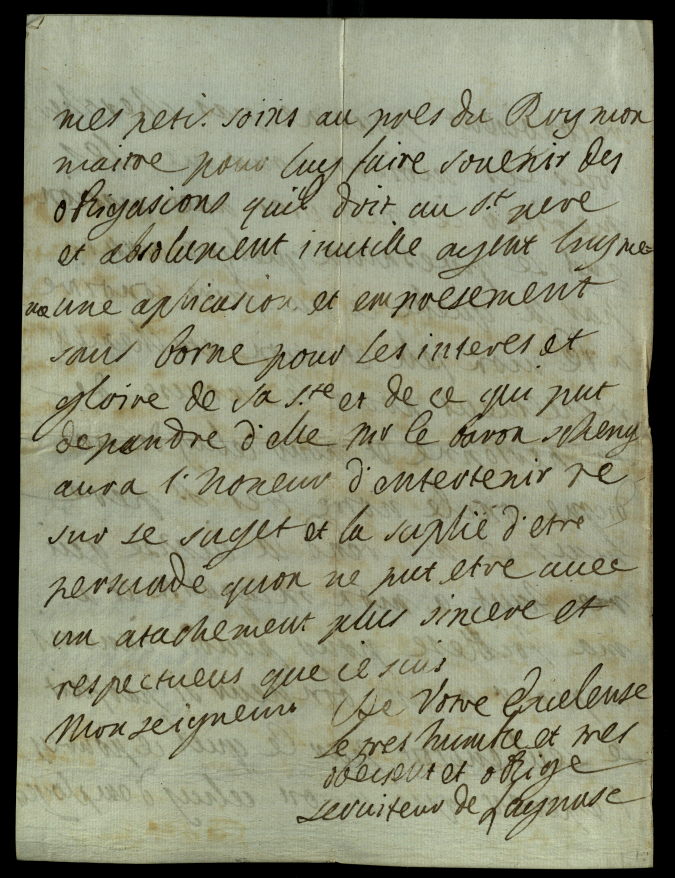 mes peti. soins au pres du Roy mon
maitre pour luy faire souenir des
obligasions quil doit au s.t pere
et absolument inutille ayent luy me=
me une aplicasion et empresement
sans borne pour les interes et
gloire de sa s.te et de ce qui put
depandre d'elle Mr le baron
aura l'honeur d'entertenir ve
sur se suget et la suplie d'etre
persuade quon ne put etre auec
un atachement plus sincere et
respectueus que ie suis
Monseigneur. De Votre Excelense
Le tres humble et tres
obeisent et oblige
seruiteur de